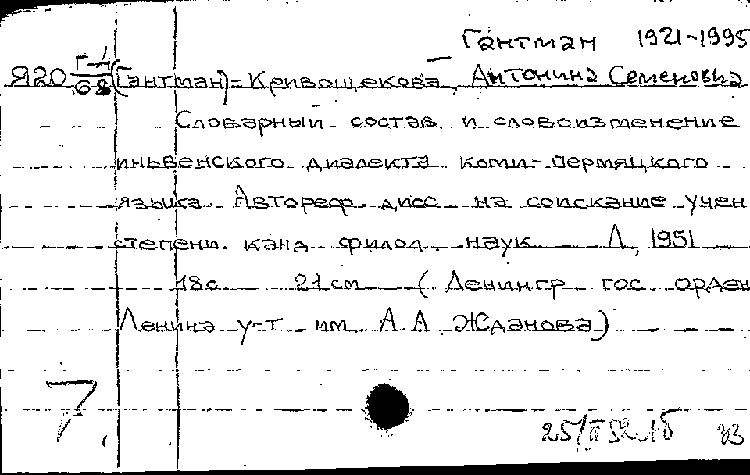 Гантман 1921-1995
Я20 Г-1/68 (Гантман)=Кривощекова, Антонина Семеновна
Словарный состав и словоизменение
иньвенского диалекта коми-пермяцкого
языка. Автореф. дисс. на соискание учен
степени канд. филол. наук Л, 1951
18с 21см (Ленингр гос орден
Ленина у-т им А А Жданова)
7.